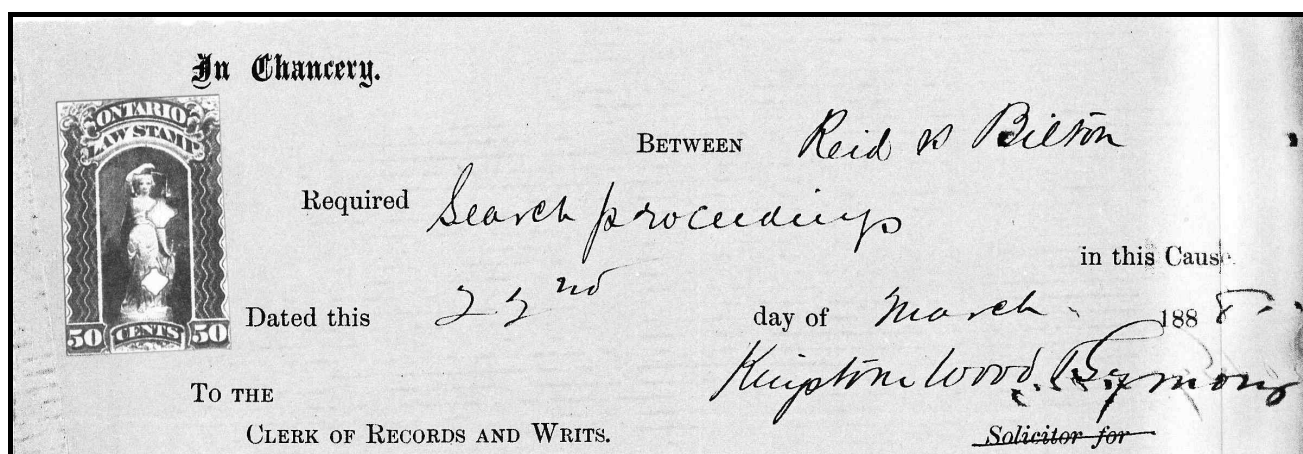 In Chancery.
ONTARIO
LAW STAMP
50 CENTS 50
BETWEEN Reid vs Bilton
Required Search proceedings
in this Cause.
Dated this 22nd day of March 1888.
Kingstone Wood & Symons
TO THE
CLERK OF RECORDS AND WRITS.
Solicitor for